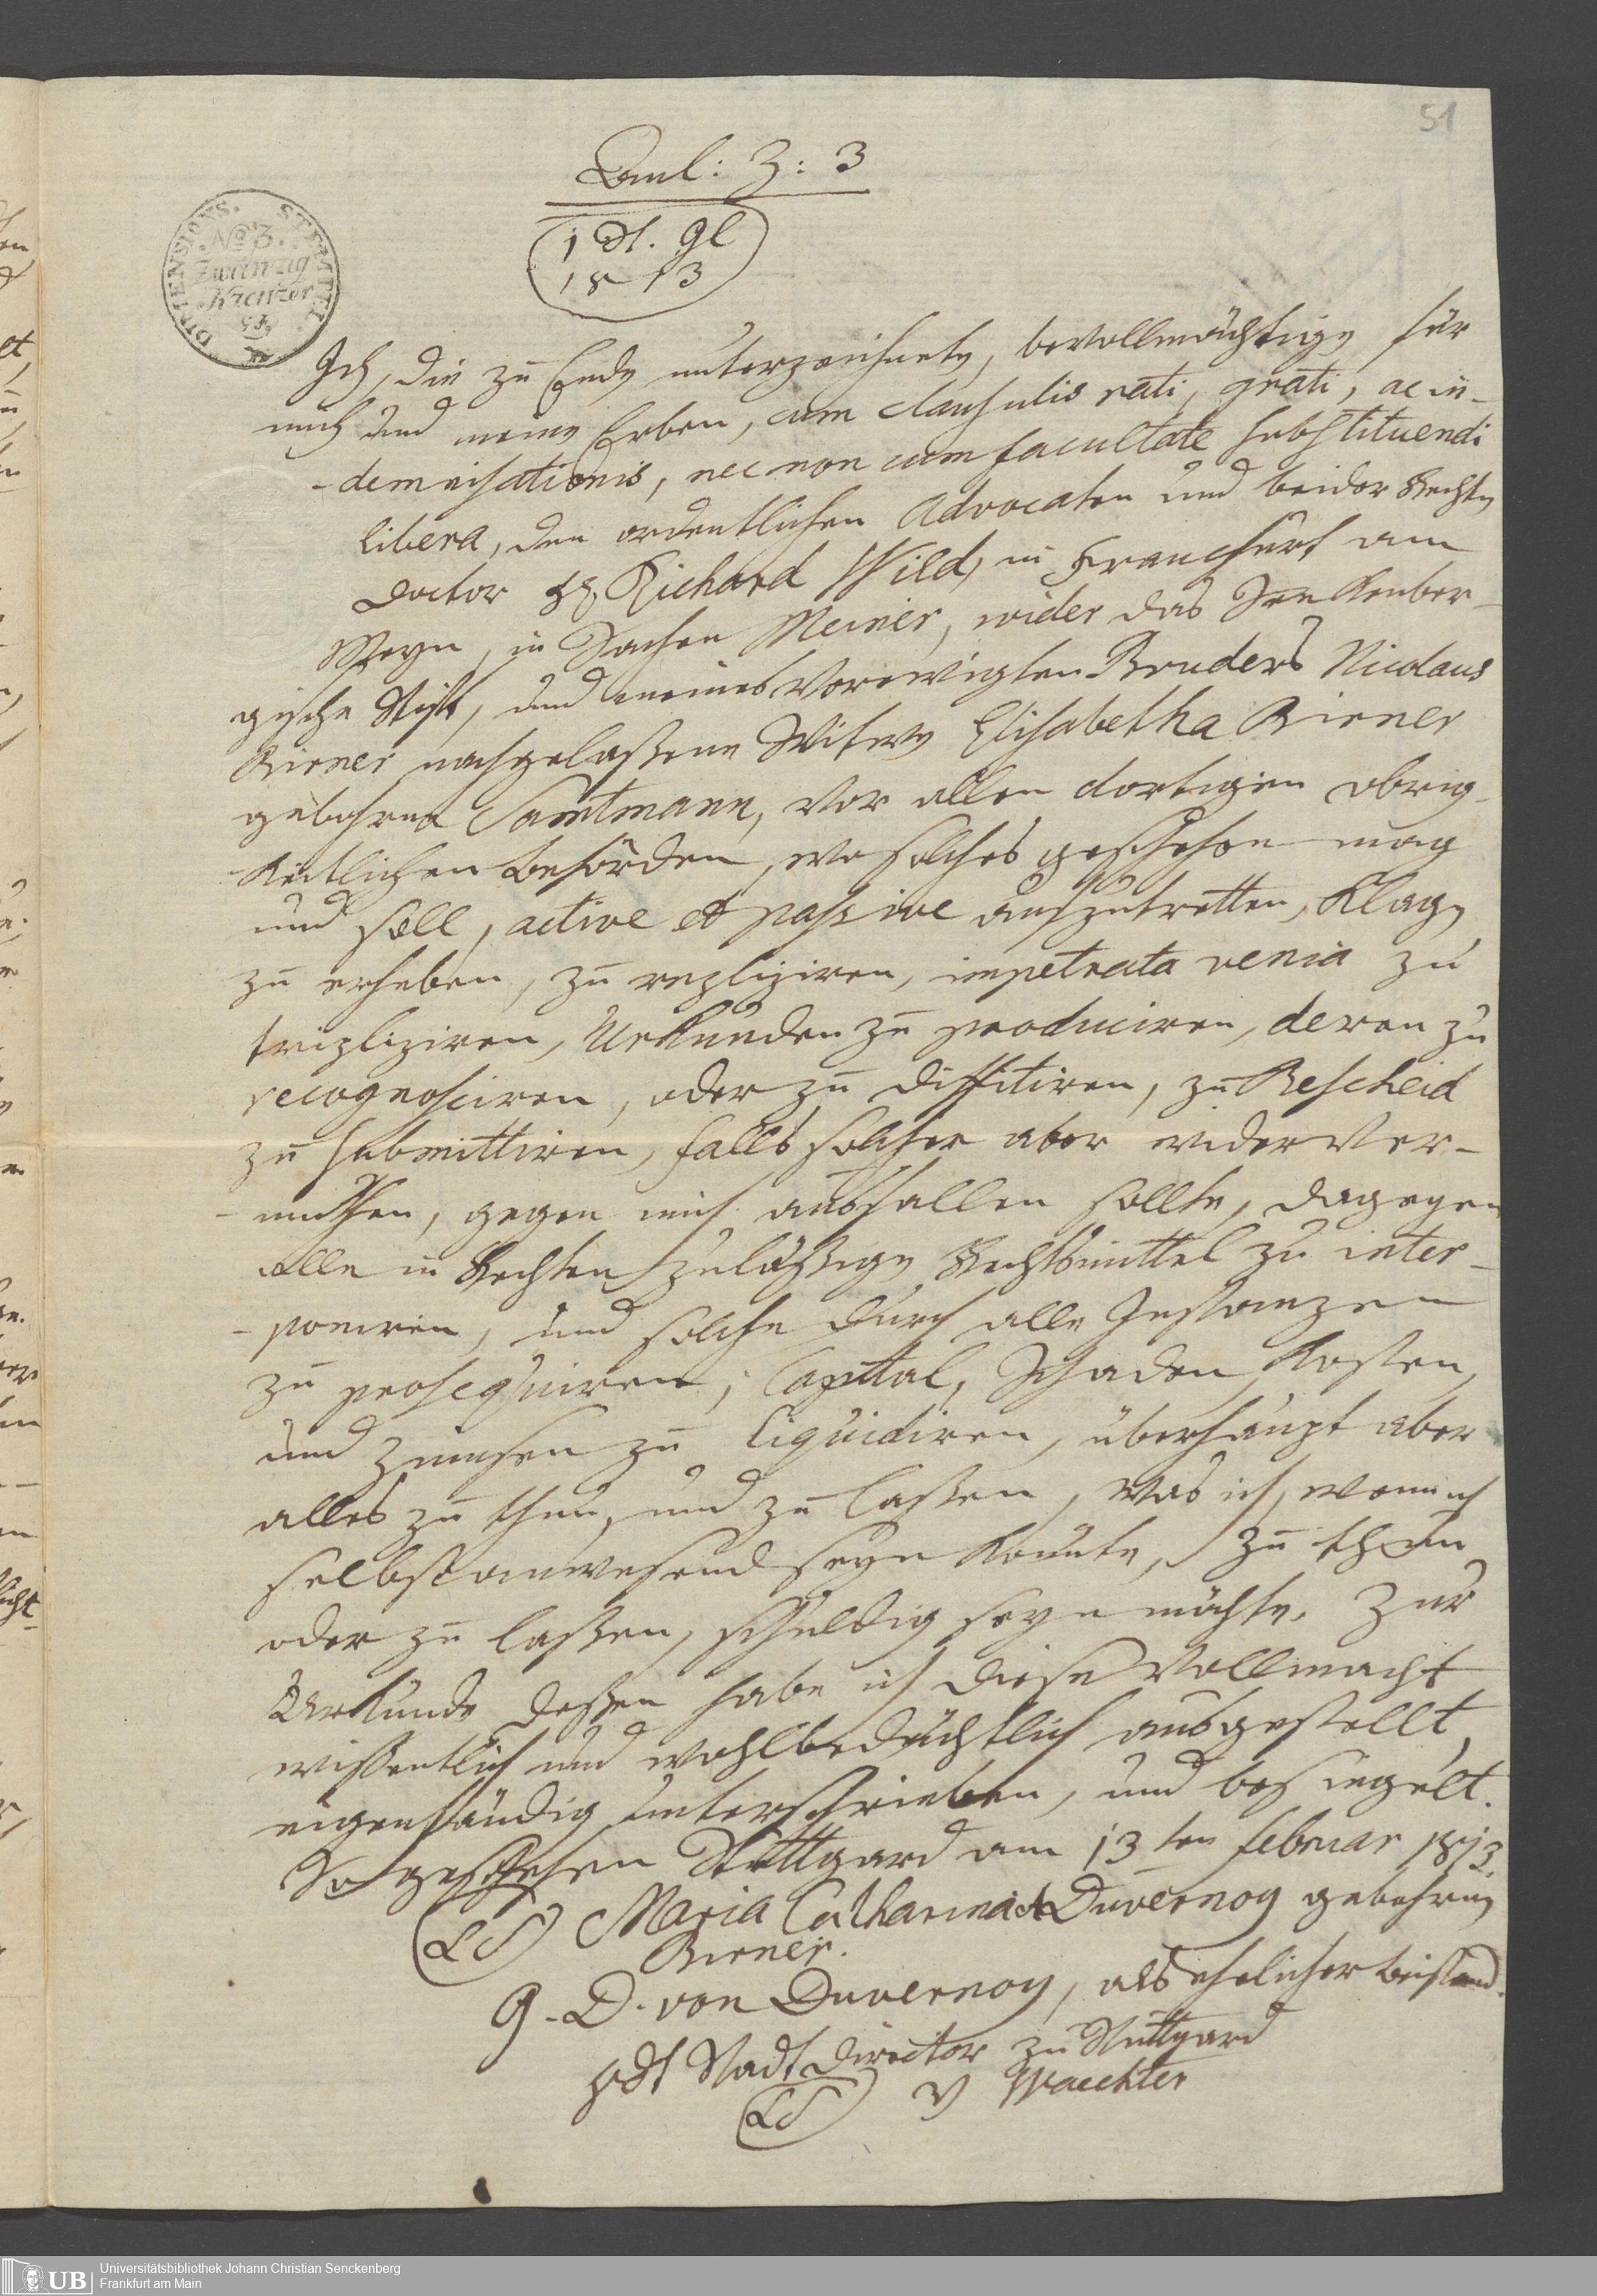 51
Beil: Z: 3
DIMENSIONS. STEMPEL.
No 3.
Zwanzig
Kreuzer
1813
Ich, die zu Ende unterzeichnete, bevollmächtige für
mich und meine Erben, cum clausulis rati, grati, ac in-
-demnisationis, nec non cum facultate substituendi
libera, den ordentlichen Advocaten und beider Rechte
Doctor H. Richard Wild, in Franckfurt am
Mayn, in Sachen Meiner, wider das Senkenber-
gische Stift, und meines verewigten Bruders Nicolaus
Birner nachgelaßene Witwe Elisabetha Birner
gebohrne Samtmann, vor allen dortigen obrig-
-keitlichen Behörden, wo solches geschehen mag
und soll, active et passive aufzutretten, Klage
zu erheben, zu repliziren, impetrata venia zu
tripliziren, Urkunden zu produciren, deren zu
recognosciren, oder zu diffitiren, zu Bescheid
zu submittiren, falls solcher aber wider Ver-
-muthen, gegen mich ausfallen sollte, dagegen
alle in Rechten zuläßige Rechtsmittel zu inter-
-poniren, und solche durch alle Instanzen
zu prosequiren; Capital, Schaden, Kosten,
und Zinnsen zu liquidiren, überhaupt aber
alles zu thun, und zu laßen, was ich, wenn ich
selbst anwesend seyn könnte, zu thun
oder zu laßen, schuldig seyn möchte. Zur
Urkunde deßen habe ich diese Vollmacht
wißentlich und wohlbedächtlich ausgestellt,
eigenhändig unterschrieben, und besiegelt.
So geschehen Stuttgard am 13ten Februar 1813.
(LS) Maria Catharina Duvernoy gebohrne
Birner.
G. D. von Duvernoy, als ehelicher Beistand.
Stadt Director zu Stuttgard
(LS) v Waechter
UB Universitätsbibliothek Johann Christian Senckenberg
Frankfurt am Main